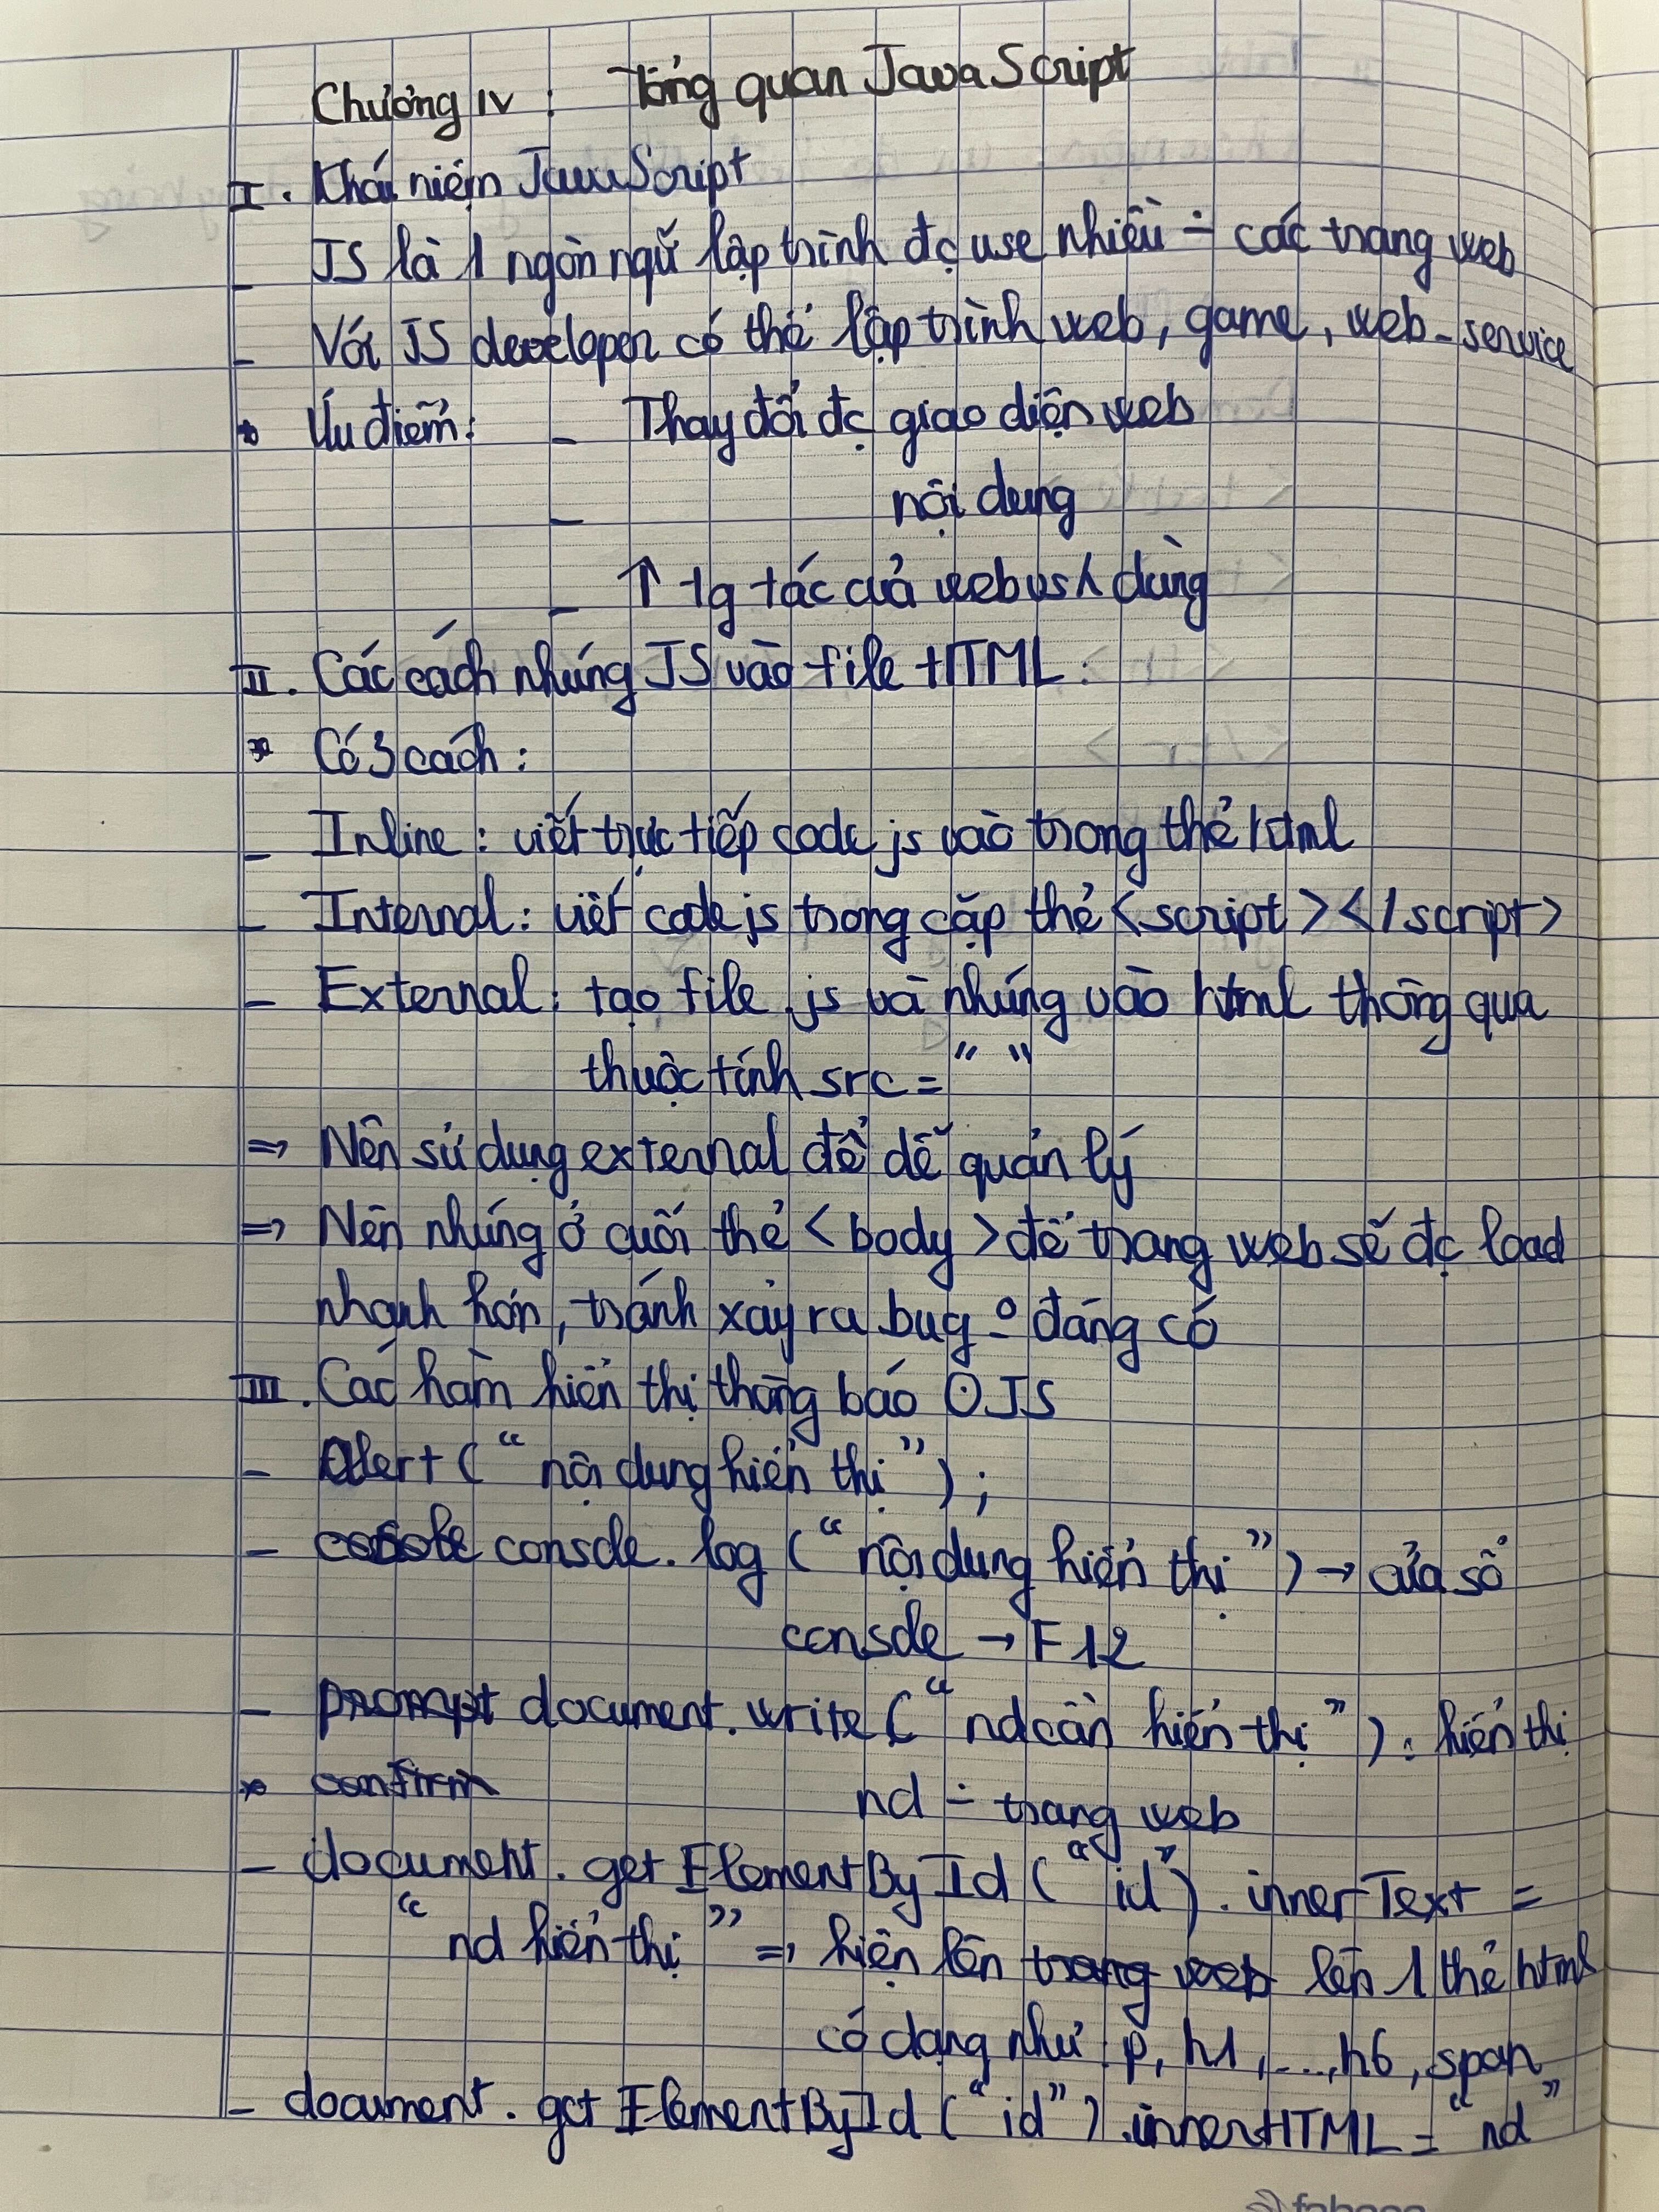 Chương IV : Tổng quan JavaScript
I. Khái niệm JavaScript
- JS là 1 ngôn ngữ lập trình đc use nhiều ÷ các trang web
- Với JS developer có thể lập trình web, game, web-service
* Ưu điểm: - Thay đổi đc giao diện web
- nội dung
- ↑ tg tác của web vs λ dùng
II. Các cách nhúng JS vào file HTML :
* Có 3 cách :
- Inline : viết trực tiếp code js vào trong thẻ html
- Internal : viết code js trong cặp thẻ <script></script>
- External : tạo file .js và nhúng vào html thông qua
thuộc tính src = " "
=> Nên sử dụng external để dễ quản lý
=> Nên nhúng ở cuối thẻ <body> để trang web sẽ đc load
nhanh hơn, tránh xảy ra bug o đáng có
III. Các hàm hiển thị thông báo ʘ JS
- Alert ( " nội dung hiển thị " ) ;
- console. log ( " nội dung hiển thị " ) → cửa sổ
console → F12
- prompt document. write ( " nd cần hiển thị " ) : hiển thị
* confirm nd ÷ trang web
- document. getElementById ( " id" ) . innerText =
" nd hiển thị " => hiện lên trang web lên 1 thẻ html
có dạng như : p, h1, ..., h6, span
- document. getElementById ( "id" ) .innerHTML = " nd "